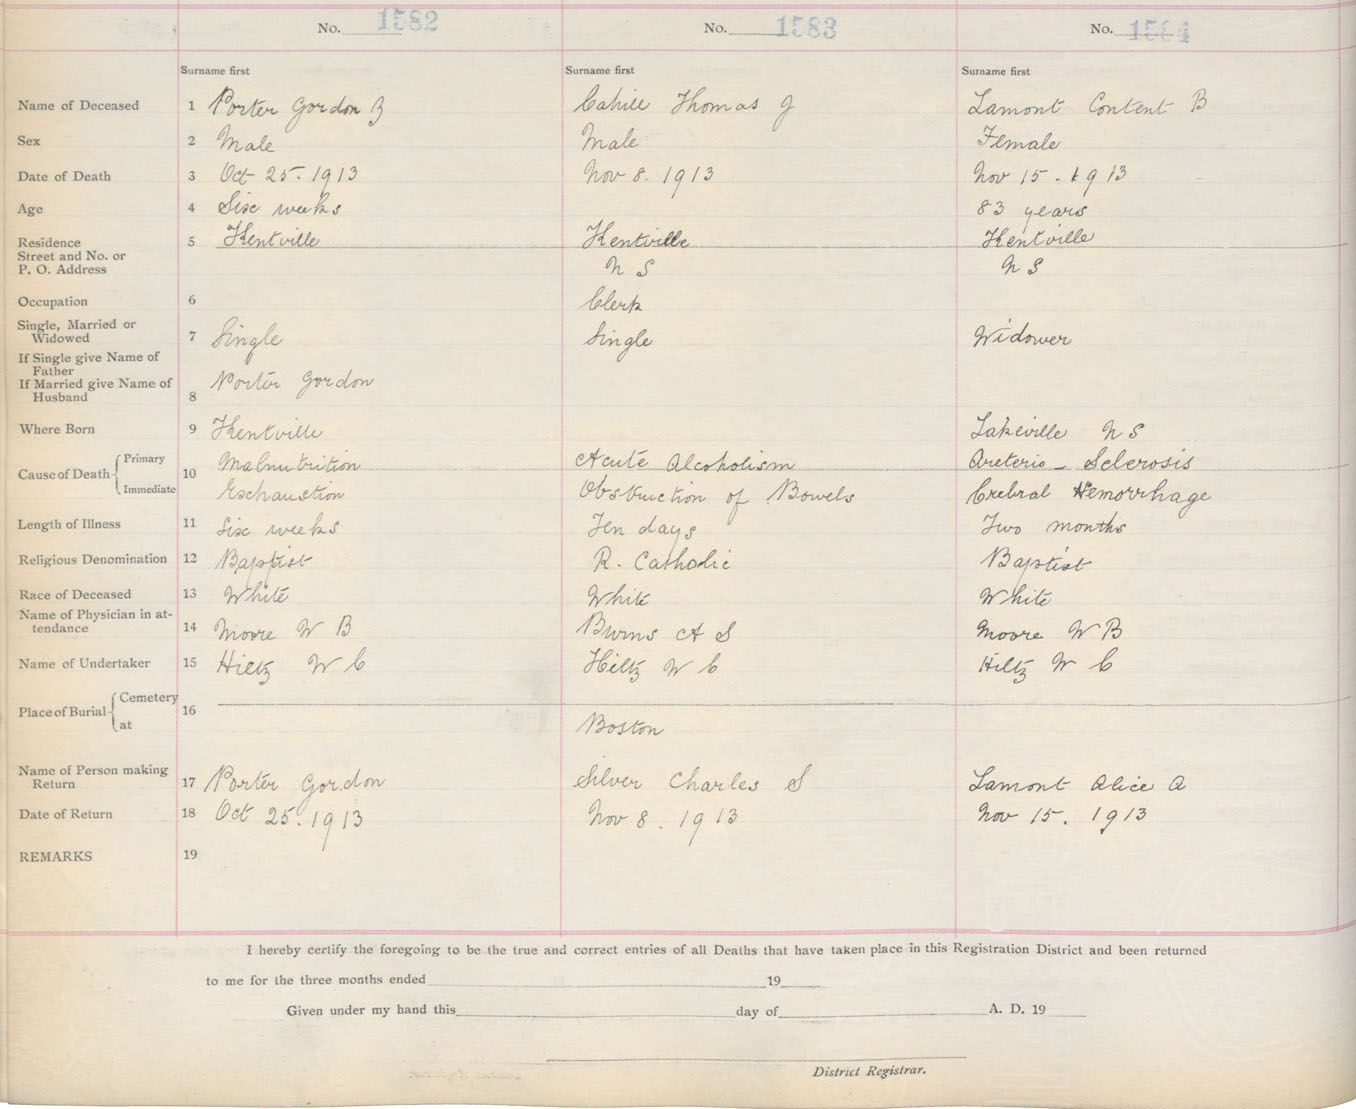 No. 1582 No. 1583 No. 1584
Surname first Surname first Surname first
Name of Deceased 1 Porter Gordon B Cahill Thomas J Lamont Content B
Sex 2 Male Male Female
Date of Death 3 Oct 25. 1913 Nov 8. 1913 Nov 15. 1913
Age 4 Six weeks 83 years
Residence 5 Kentville Kentville Kentville
Street and No. or
P. O. Address N S N S
Occupation 6 Clerk
Single, Married or
Widowed 7 Single Single Widower
If Single give Name of
Father
If Married give Name of Porter Gordon
Husband 8
Where Born 9 Kentville Lakeville N S
Cause of Death Primary 10 Malnutrition Acute Alcoholism Areterio - Sclerosis
Immediate Exhaustion Obstruction of Bowels Crebral Hemorrhage
Length of Illness 11 Six weeks Ten days Two months
Religious Denomination 12 Baptist R. Catholic Baptist
Race of Deceased 13 White White White
Name of Physician in at-
tendance 14 Moore W B Burns A S Moore W B
Name of Undertaker 15 Hiltz W C Hiltz W C Hiltz W C
Place of Burial Cemetery 16
at Boston
Name of Person making
Return 17 Porter Gordon Silver Charles S Lamont Alice A
Date of Return 18 Oct 25. 1913 Nov 8. 1913 Nov 15. 1913
REMARKS 19
I hereby certify the foregoing to be the true and correct entries of all Deaths that have taken place in this Registration District and been returned
to me for the three months ended 19
Given under my hand this day of A. D. 19
District Registrar.